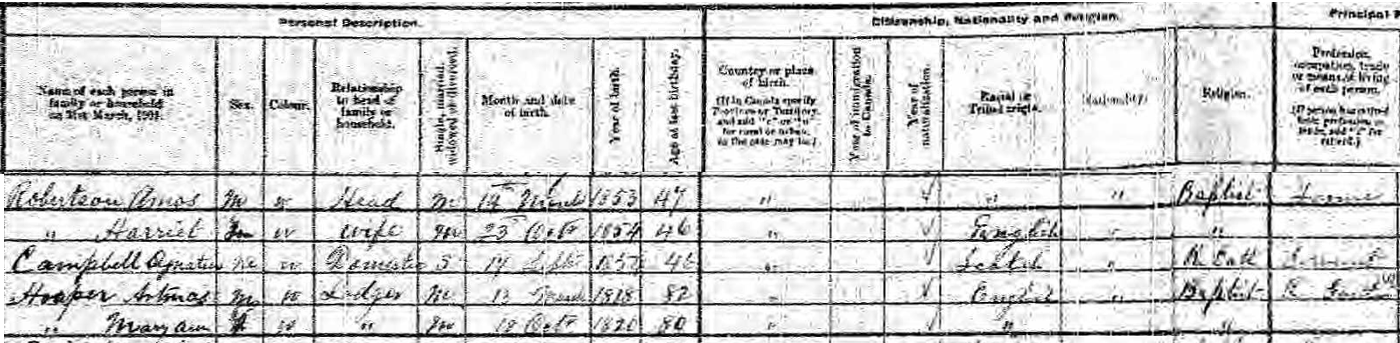 Personal Description.
Citizenship, Nationality and Religion.
Principal
Name of each person in family or household on 31st March, 1901.
Sex.
Colour.
Relationship to head of family or household.
Single, married, widowed or divorced.
Month and date of birth.
Year of birth.
Age at last birthday.
Country or place of birth.
(If in Canada specify Province or Territory, and add "r" or "u" for rural or urban, as the case may be.)
Year of immigration to Canada.
Year of naturalization.
Racial or Tribal origin.
Nationality.
Religion.
Profession, occupation, trade or means of living of each person.
Robertson Amos M w Head M 14 1853 47 " " " Baptist
" Harriet w wife M 23 Oct 1854 46 " English " "
Campbell w Domestic S 14 46 " Scotch " R Cath
Hooper Artmas M w Lodger M 13 1818 82 " English " Baptist R
" Mary ann w " M 18 Oct 1820 80 " " "